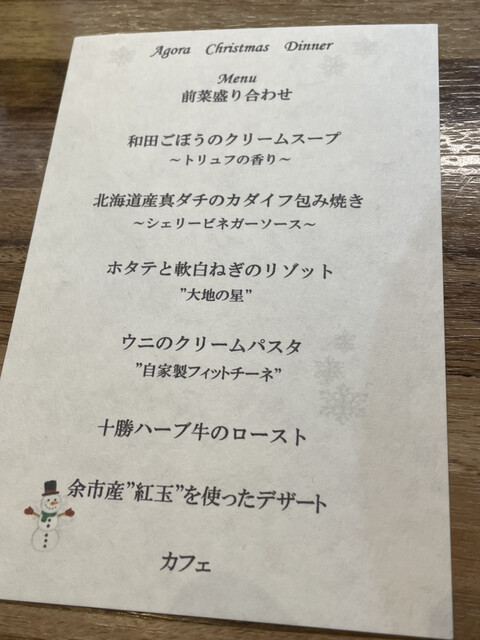 Agora Christmas Dinner
Menu
前菜盛り合わせ
和田ごぼうのクリームスープ
～トリュフの香り～
北海道産真ダチのカダイフ包み焼き
～シェリービネガーソース～
ホタテと軟白ねぎのリゾット
”大地の星”
ウニのクリームパスタ
”自家製フィットチーネ”
十勝ハーブ牛のロースト
余市産”紅玉”を使ったデザート
カフェ